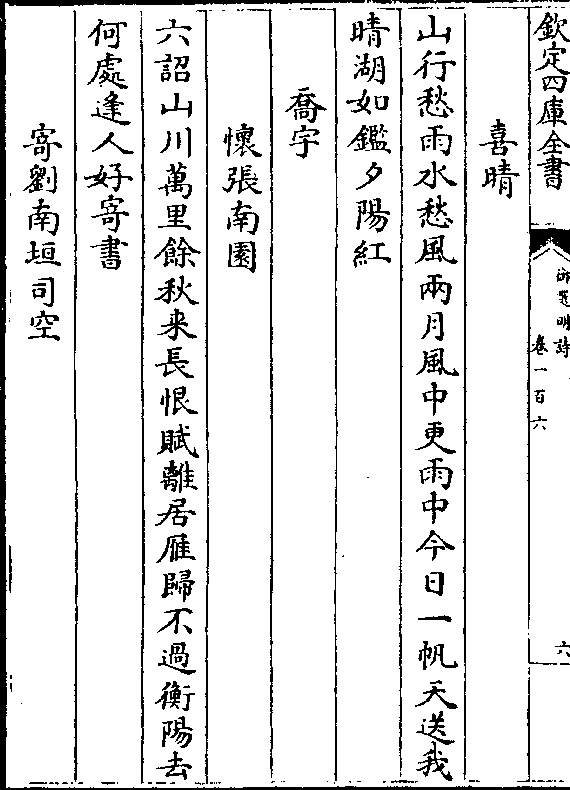 欽定四庫全書
御選明詩
卷一百六
六
喜晴
山行愁雨水愁風兩月風中更雨中今日一帆天送我
晴湖如鑑夕陽紅
喬宇
懷張南園
六詔山川萬里餘秋来長恨賦離居雁歸不過衡陽去
何處逢人好寄書
寄劉南垣司空